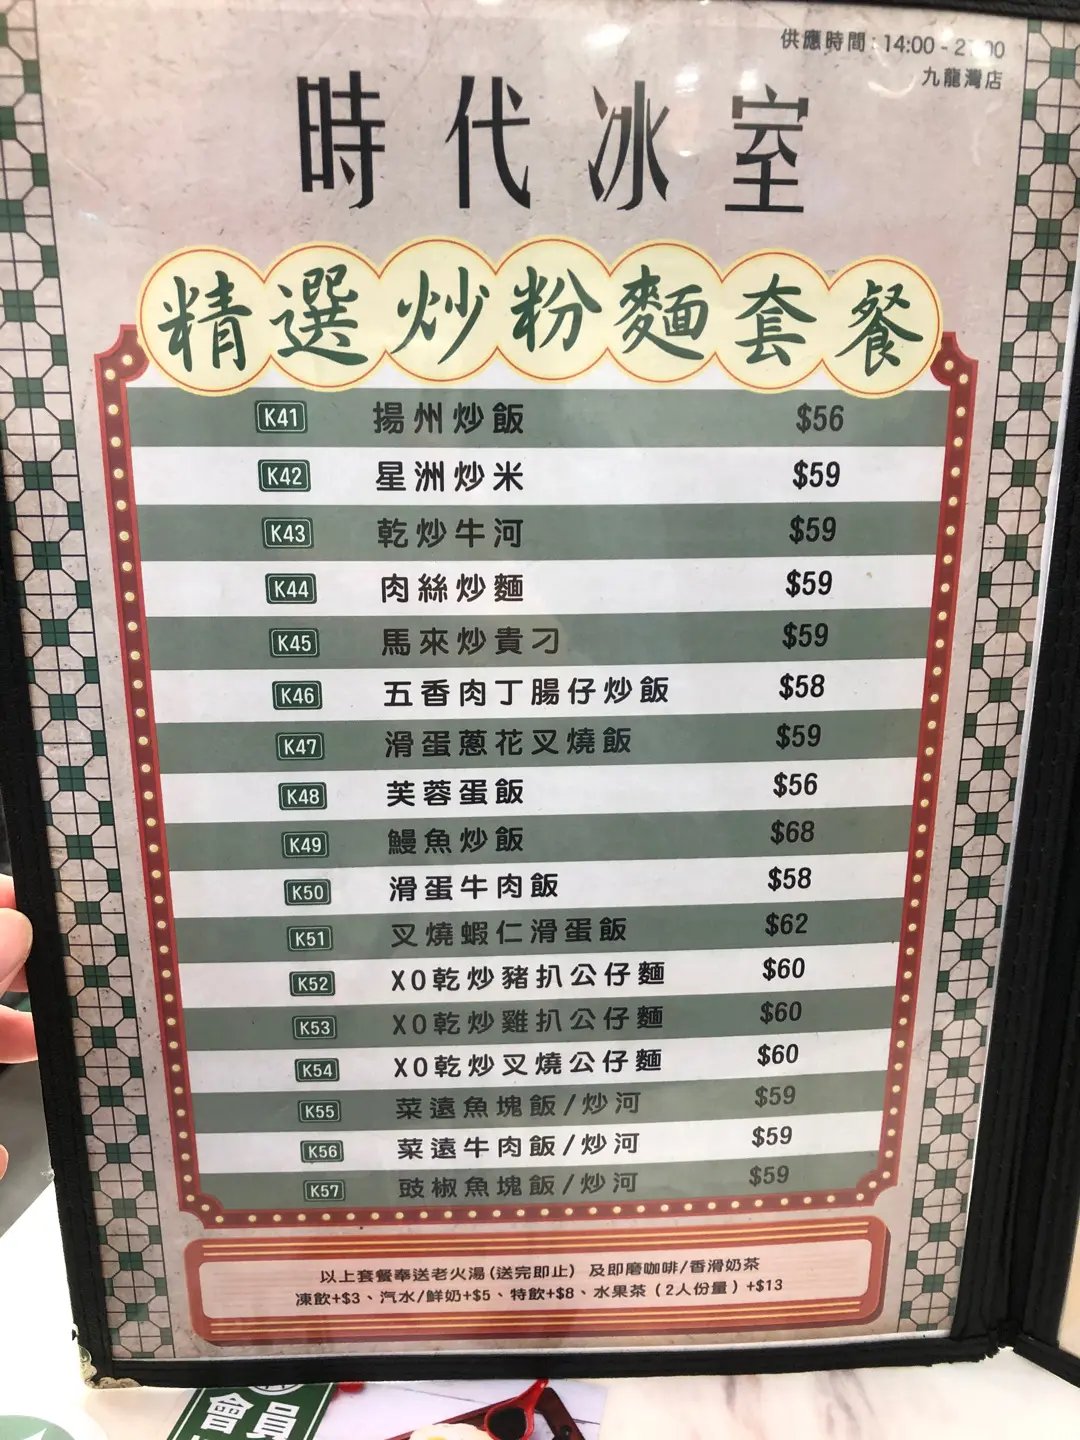 供應時間：14:00 - 21:00
九龍灣店
時代冰室
精選炒粉麵套餐
K41 揚州炒飯 $56
K42 星洲炒米 $59
K43 乾炒牛河 $59
K44 肉絲炒麵 $59
K45 馬來炒貴刁 $59
K46 五香肉丁腸仔炒飯 $58
K47 滑蛋蔥花叉燒飯 $59
K48 芙蓉蛋飯 $56
K49 鰻魚炒飯 $68
K50 滑蛋牛肉飯 $58
K51 叉燒蝦仁滑蛋飯 $62
K52 XO乾炒豬扒公仔麵 $60
K53 XO乾炒雞扒公仔麵 $60
K54 XO乾炒叉燒公仔麵 $60
K55 菜遠魚塊飯/炒河 $59
K56 菜遠牛肉飯/炒河 $59
K57 豉椒魚塊飯/炒河 $59
以上套餐奉送老火湯(送完即止) 及即磨咖啡/香滑奶茶
凍飲+$3、汽水/鮮奶+$5、特飲+$8、水果茶（2人份量）+$13
會員